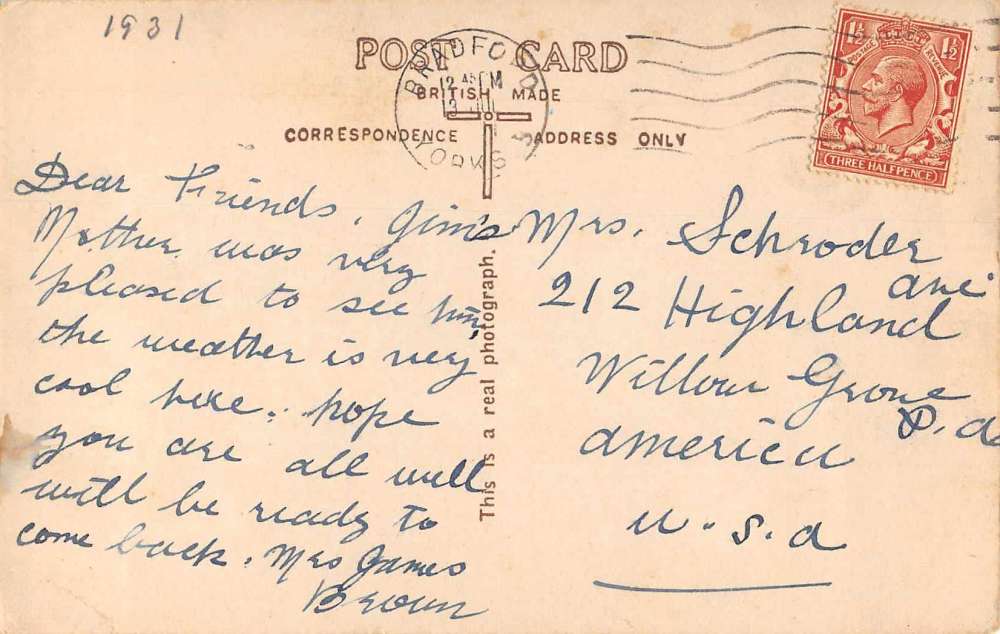 1931
POST CARD
BRITISH MADE
CORRESPONDENCE
ADDRESS ONLY
BRADFORD
12 45 PM
YORKS
1½ 1½
POSTAGE REVENUE
THREE HALFPENCE
Dear Friends, Jim's
Mother was very
pleased to see him,
the weather is very
cool here, hope
you are all well
will be ready to
come back. Mrs James
Brown
This is a real photograph.
Mrs. Schroder
212 Highland ave
Willow Grove
P.a
america
u.s.a